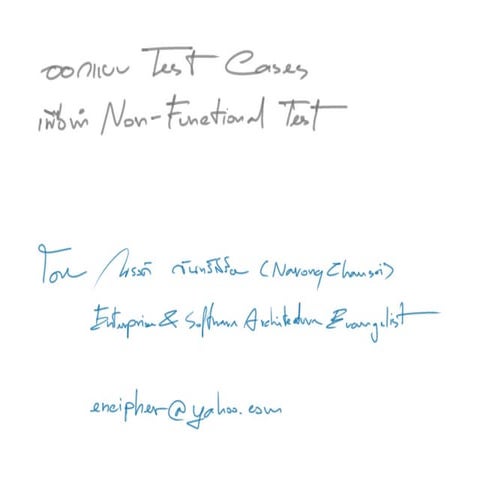 ออกแบบ Test Cases
เพื่อทำ Non-Functional Test
โดย ณรงค์ จันทร์สร้อย (Narong Chansoi)
Enterprise & Software Architecture Evangelist
encipher@yahoo.com